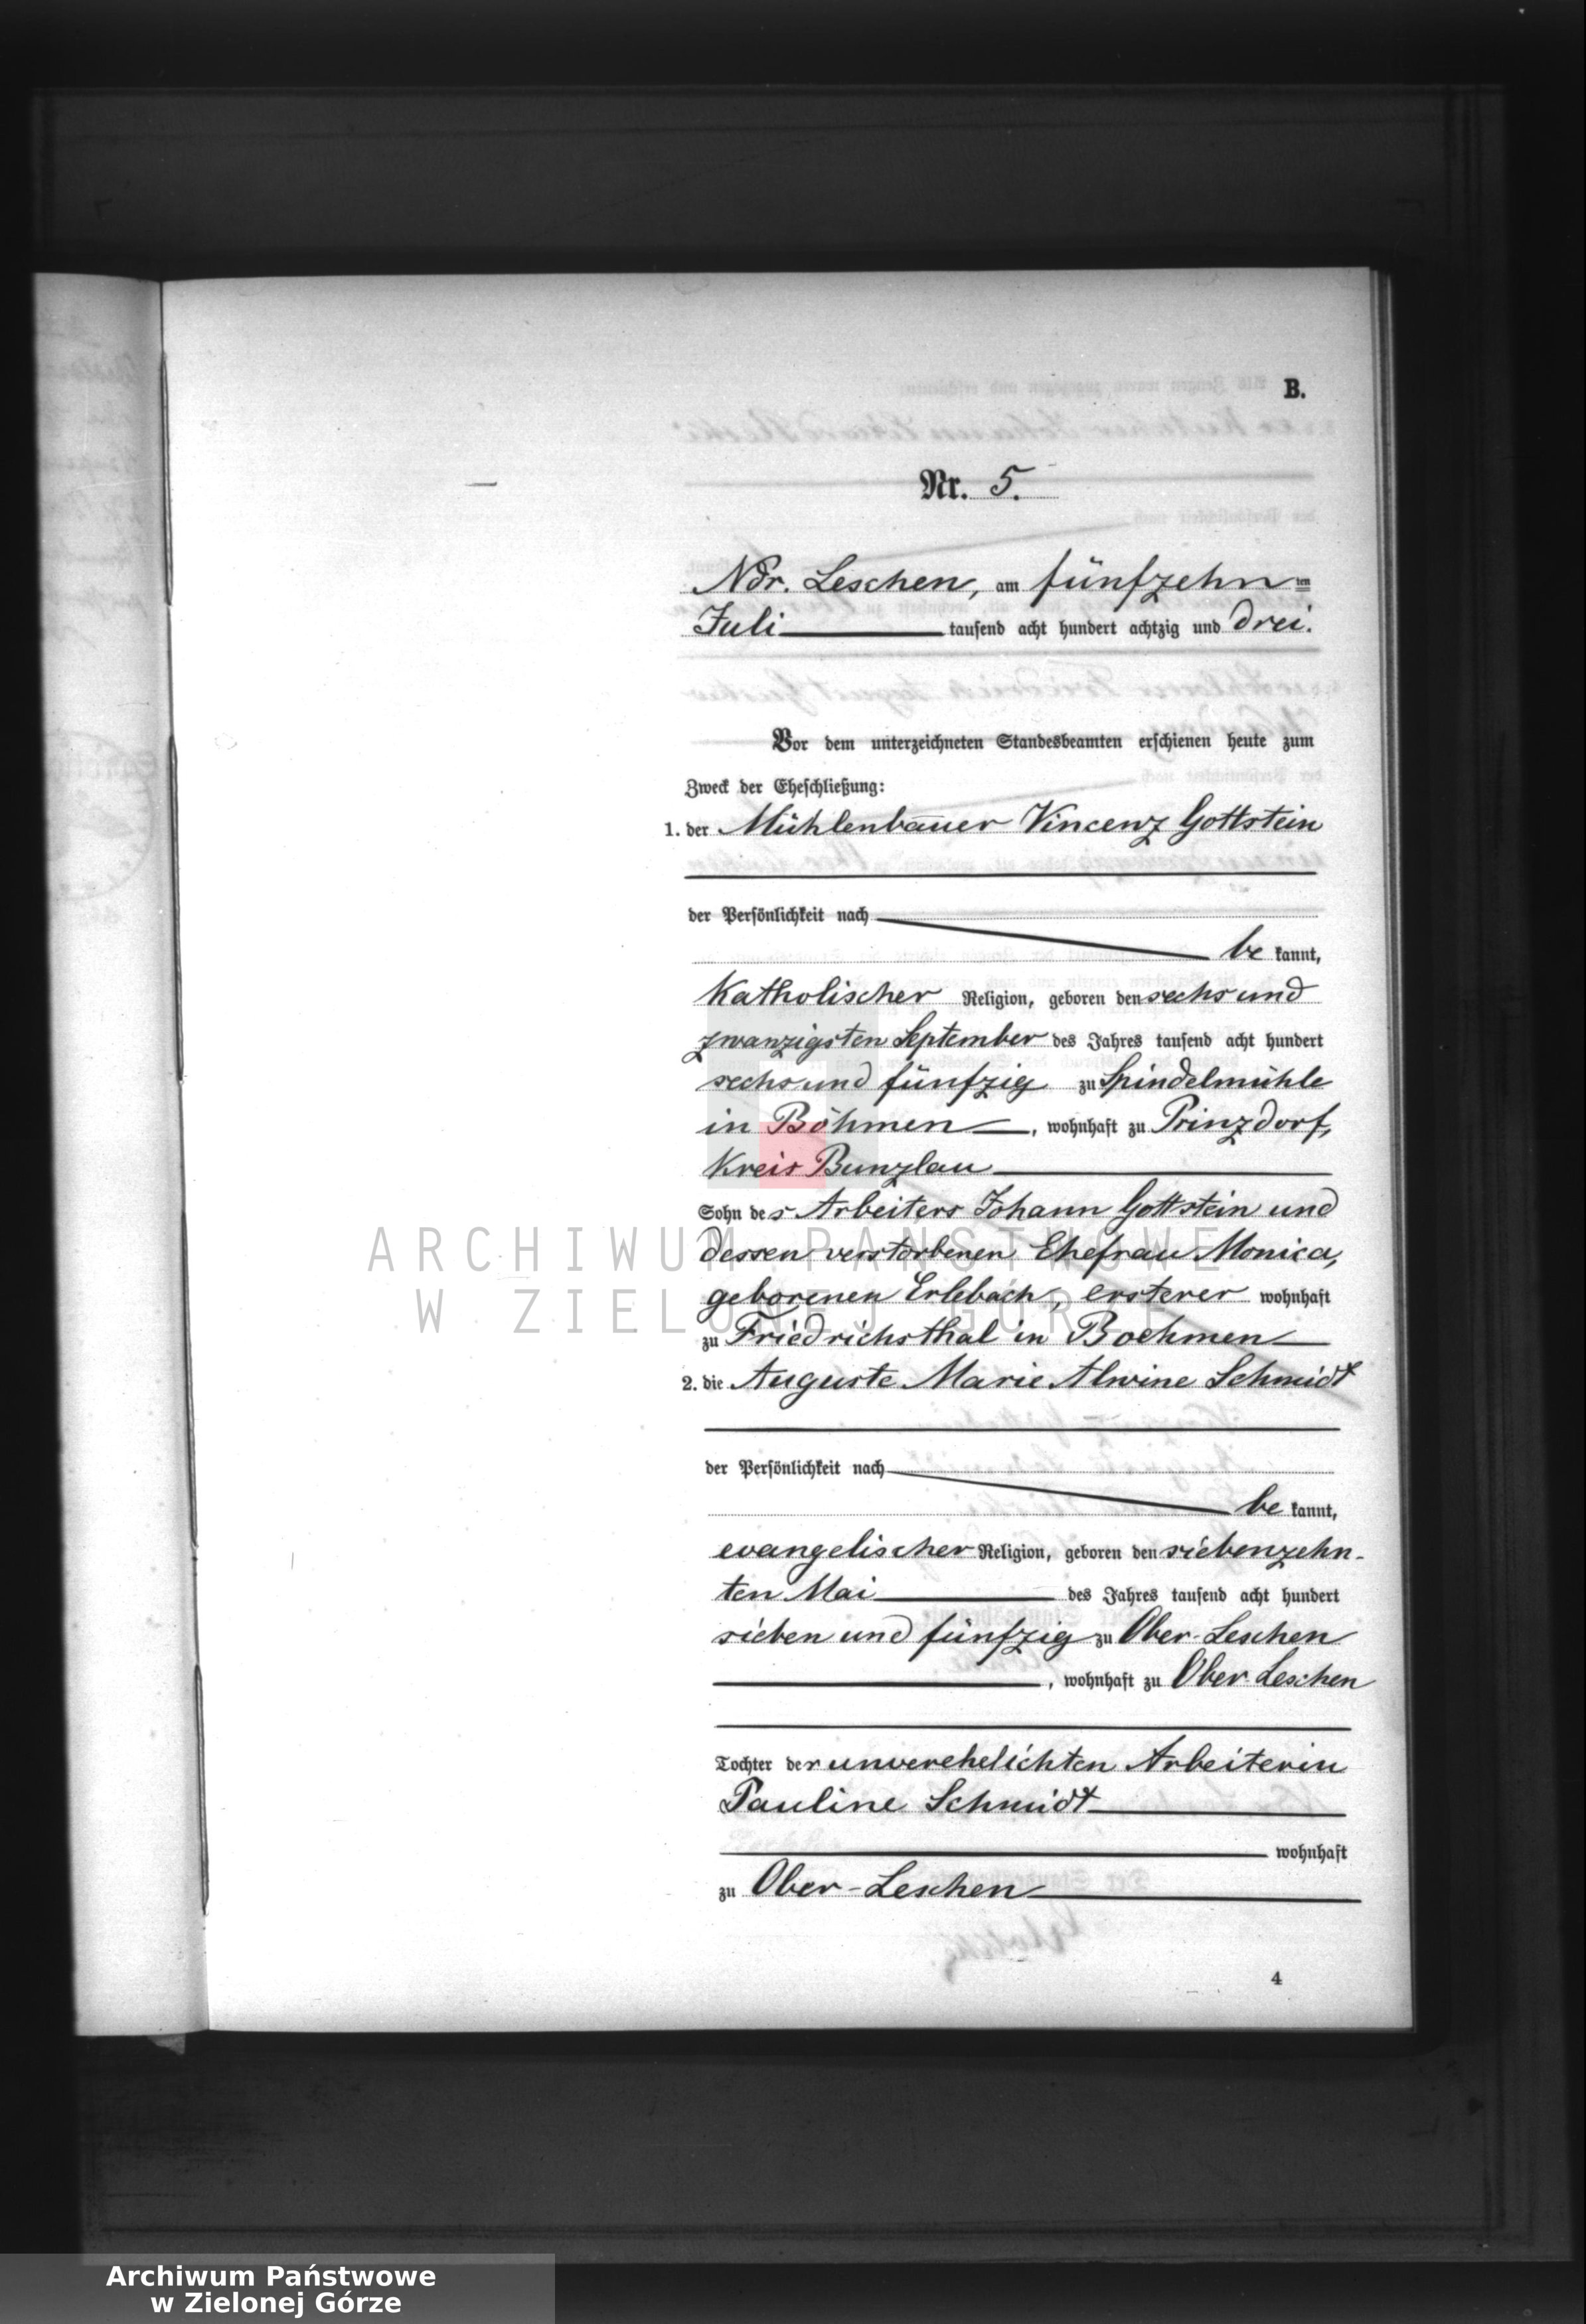 B.
Nr. 5.
Ndr. Leschen, am fünfzehn ten
Juli tausend acht hundert achtzig und drei.
Vor dem unterzeichneten Standesbeamten erschienen heute zum
Zweck der Eheschließung:
1. der Mühlenbauer Vincenz Gottstein
der Persönlichkeit nach
be kannt,
katholischer Religion, geboren den sechs und
zwanzigsten September des Jahres tausend acht hundert
sechs und fünfzig zu Spindelmühle
in Böhmen, wohnhaft zu Prinzdorf,
Kreis Bunzlau
Sohn des Arbeiters Johann Gottstein und
dessen verstorbenen Ehefrau Monica,
geborenen Erlebach, ersterer wohnhaft
zu Friedrichsthal in Boehmen
2. die Auguste Marie Alwine Schmidt
der Persönlichkeit nach
be kannt,
evangelischer Religion, geboren den siebenzehn-
ten Mai des Jahres tausend acht hundert
sieben und fünfzig zu Ober-Leschen
, wohnhaft zu Ober Leschen
Tochter der unverehelichten Arbeiterin
Pauline Schmidt
wohnhaft
zu Ober-Leschen
4
ARCHIWUM PAŃSTWOWE
W ZIELONEJ GÓRZE
Archiwum Państwowe
w Zielonej Górze